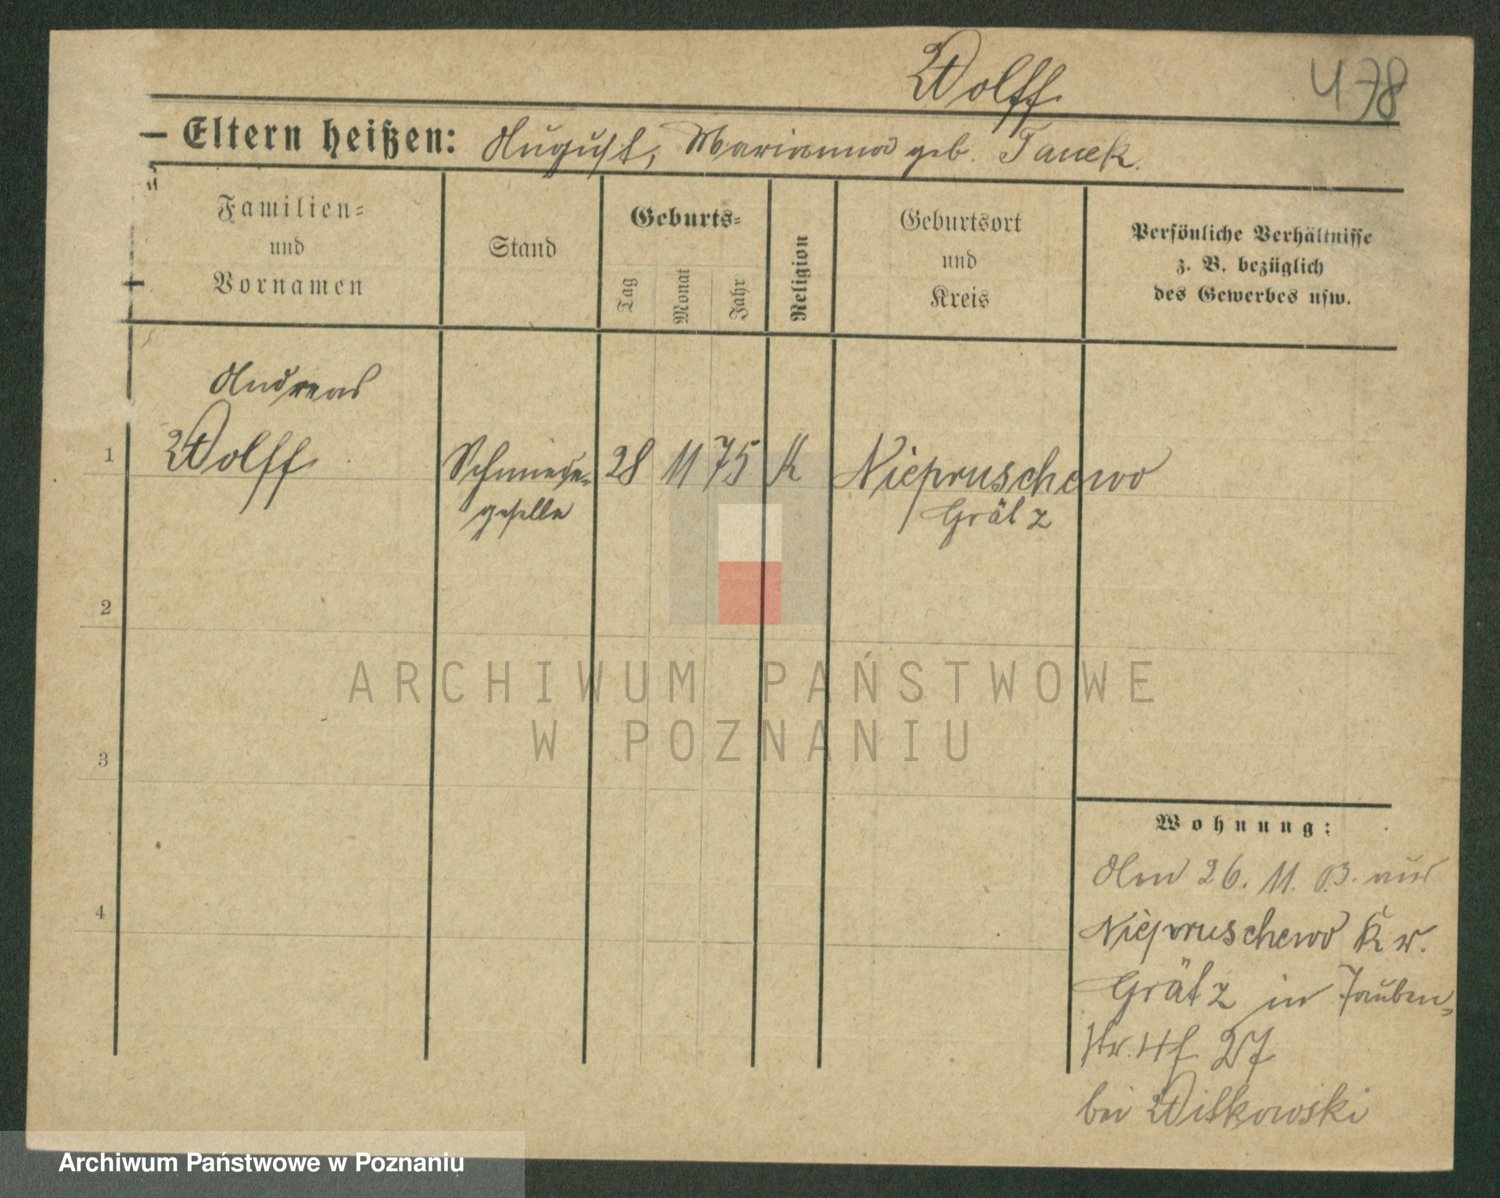 Wolff
478
— Eltern heißen: August, Marianna geb. Tanek.
Familien-
und
Vornamen
Stand
Geburts-
Tag
Monat
Jahr
Religion
Geburtsort
und
Kreis
Persönliche Verhältnisse
z. B. bezüglich
des Gewerbes usw.
Andreas
1 Wolff Schmiede- 28 11 75 K Niepruschewo
geselle Grätz
2
3
4
ARCHIWUM PAŃSTWOWE
W POZNANIU
Wohnung:
Am 26. 11. 03. aus
Niepruschewo Kr.
Grätz in Tauben-
str.
bei Witkowski
Archiwum Państwowe w Poznaniu